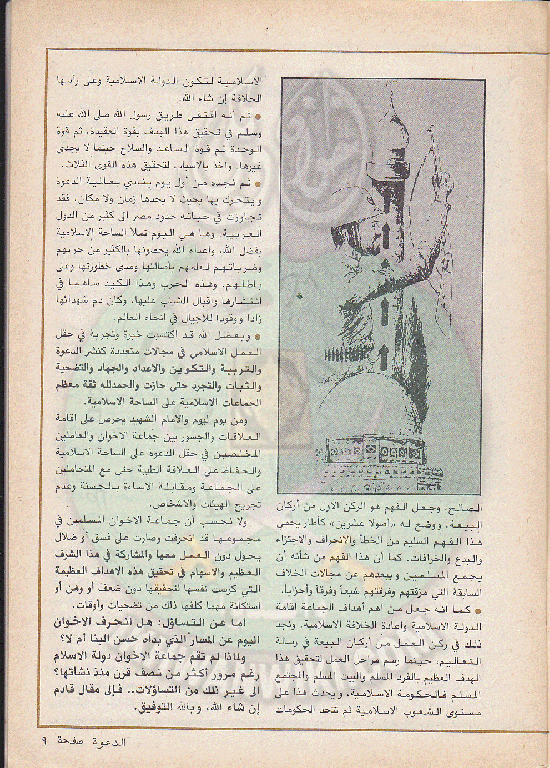 الصالح. وجعل الفهم هو الركن الأول من أركان
البيعة، ووضع له «أصولا عشرين» كإطار يحمى
هذا الفهم السليم من الخطأ والانحراف والاجتزاء
والبدع والخرافات، كما أن هذا الفهم من شأنه أن
يجمع المسلمين ويبعدهم عن مجالات الخلاف
السابقة التى مزقتهم وفرقتهم شيعا وفرقا وأحزابا.
● كما انه جعل من أهم أهداف الجماعة اقامة
الدولة الاسلامية وإعادة الخلافة الاسلامية. ونجد
ذلك فى ركن العمل من أركان البيعة فى رسالة
التعاليم، حينما رسم مراحل العمل لتحقيق هذا
الهدف العظيم بالفرد المسلم والبيت المسلم والمجتمع
المسلم فالحكومة الاسلامية، ويحدث هذا على
مستوى الشعوب الاسلامية ثم تتحد الحكومات
الاسلامية لتكون الدولة الاسلامية وعلى رأسها
الخلافة إن شاء الله.
● ثم أنه اقتفى طريق رسول الله صلى الله عليه
وسلم فى تحقيق هذا الهدف بقوة العقيدة، ثم قوة
الوحدة ثم قوة الساعد والسلاح حينما لا يجدى
غيرها. وأخذ بالأسباب لتحقيق هذه القوى الثلاث.
● ثم نجده من أول يوم ينادى بعالمية الدعوة
ويتحرك بها بحيث لا يحدها زمان ولا مكان، فقد
تجاوزت فى حياته حدود مصر الى كثير من الدول
العربية. وها هى اليوم تملأ الساحة الإسلامية
بفضل الله، وأعداء الله يخصونها بالكثير من حربهم
وضرباتهم لعلمهم بأصالتها ومدى خطورتها على
باطلهم. وهذه الحرب وهذا الكيد ساهما فى
انتشارها واقبال الشباب عليها، وكان دم شهدائها
زادا ووقودا للأجيال فى انحاء العالم.
● وبفضل الله قد اكتسبت خبرة وتجربة فى حقل
العمل الاسلامى فى مجالات متعددة كنشر الدعوة
والتربية والتكوين والاعداد والجهاد والتضحية
والثبات والتجرد حتى حازت والحمدلله ثقة معظم
الجماعات الاسلامية على الساحة الاسلامية.
ومن يوم ليوم والامام الشهيد يحرص على اقامة
العلاقات والجسور بين جماعة الاخوان والعاملين
المخلصين فى حقل الدعوة على الساحة الاسلامية
والحفاظ على العلاقة الطيبة حتى مع المتحاملين
على الجماعة ومقابلة الاساءة بالحسنة وعدم
تجريح الهيئات والأشخاص.
ولا نحسب أن جماعة الاخوان المسلمين فى
مجموعها قد انحرفت وصارت على فسق أو ضلال
يحول دون العمل معها والمشاركة فى هذا الشرف
العظيم والاسهام فى تحقيق هذه الاهداف العظيمة
التى كرست نفسها لتحقيقها دون ضعف أو وهن أو
استكانة مهما كلفها ذلك من تضحيات وأوقات.
أما عن التساؤل: هل انحرف الاخوان
اليوم عن المسار الذى بدأه حسن البنا أم لا؟
ولماذا لم تقم جماعة الاخوان دولة الاسلام
رغم مرور أكثر من نصف قرن منذ نشأتها؟
الى غير ذلك من التساؤلات.. فإلى مقال قادم
إن شاء الله، وبالله التوفيق.
الدعوة صفحة ٩